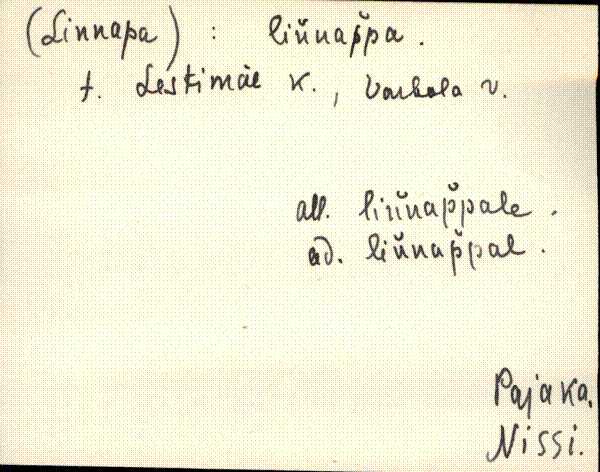 (Linnapa) : lin̆nap̆pa.
t. Leskimäe K., Varbola v.
all. lin̆nap̆pale.
ad. lin̆nap̆pal.
Pajaka.
Nissi.